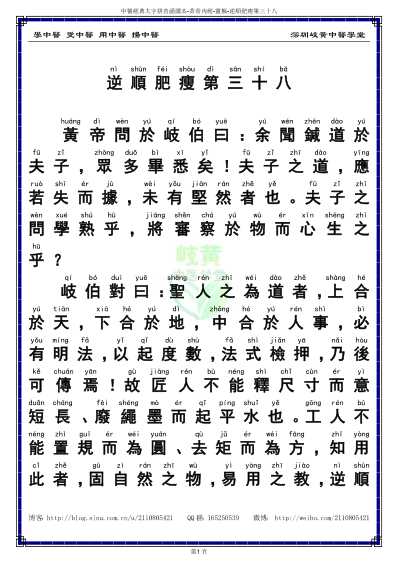 中醫經典大字拼音誦讀本-黃帝內經-靈樞-逆順肥瘦第三十八
學中醫 愛中醫 用中醫 揚中醫
深圳岐黃中醫學堂
nì shùn féi shòu dì sān shí bā
逆順肥瘦第三十八
huáng dì wèn yú qí bó yuē yú wén zhēn dào yú
黃帝問於岐伯曰：余聞鍼道於
fū zǐ zhòng duō bì xī yǐ fū zǐ zhī dào yīng
夫子，眾多畢悉矣！夫子之道，應
ruò shī ér jù wèi yǒu jiān rán zhě yě fū zǐ zhī
若失而據，未有堅然者也。夫子之
wèn xué shú hū jiāng shěn chá yú wù ér xīn shēng zhī
問學熟乎，將審察於物而心生之
hū
乎？
qí bó duì yuē shèng rén zhī wéi dào zhě shàng hé
岐伯對曰：聖人之為道者，上合
yú tiān xià hé yú dì zhōng hé yú rén shì bì
於天，下合於地，中合於人事，必
yǒu míng fǎ yǐ qǐ dù shù fǎ shì jiǎn yā nǎi hòu
有明法，以起度數，法式檢押，乃後
kě chuán yān gù jiàng rén bù néng shì chǐ cùn ér yì
可傳焉！故匠人不能釋尺寸而意
duǎn cháng fèi shéng mò ér qǐ píng shuǐ yě gōng rén bù
短長、廢繩墨而起平水也。工人不
néng zhì guī ér wéi yuán qù jǔ ér wéi fāng zhī yòng
能置規而為圓、去矩而為方，知用
cǐ zhě gù zì rán zhī wù yì yòng zhī jiào nì shùn
此者，固自然之物，易用之教，逆順
博客：http://blog.sina.com.cn/u/2110805421 QQ群：165250539 微博：http://weibo.com/2110805421
第1頁
岐黃